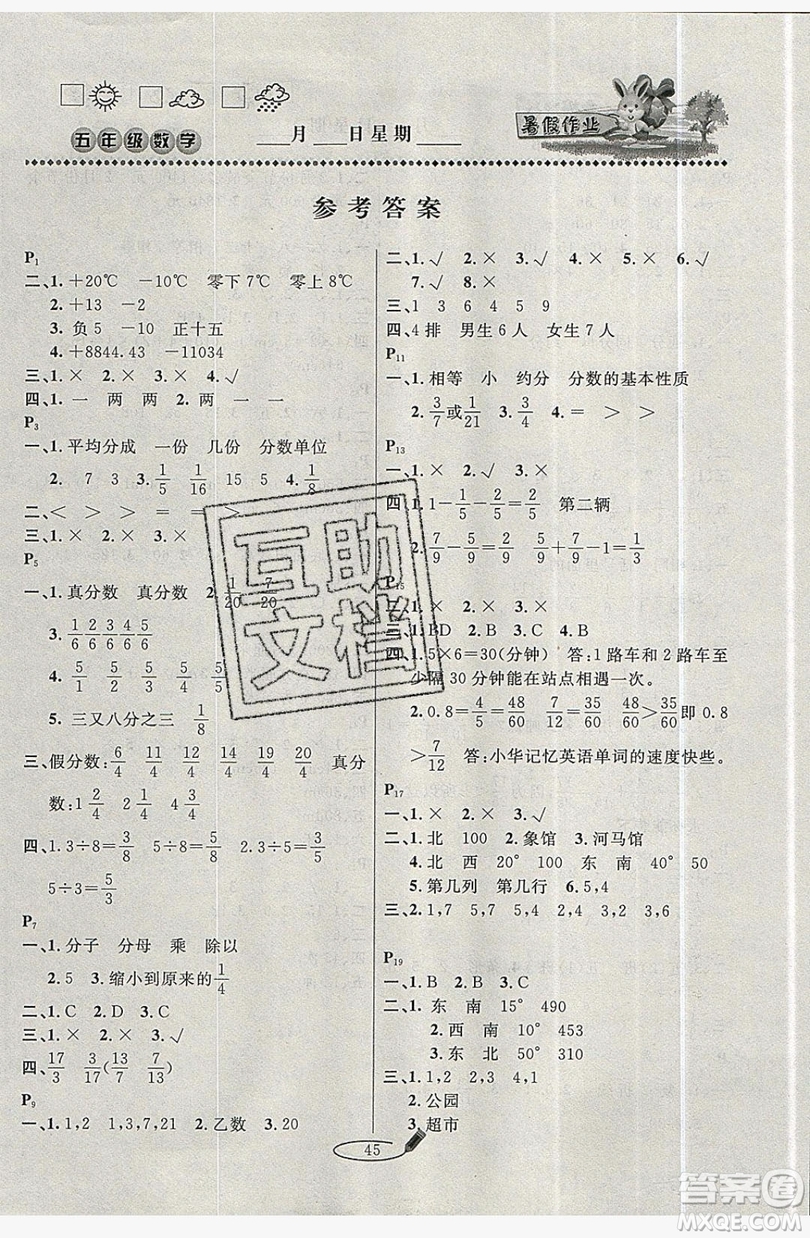 五年级数学
____月____日星期____
暑假作业
参考答案
P1
二、1. +20℃ －10℃ 零下7℃ 零上8℃
2. +13 －2
3. 负5 －10 正十五
4. +8844.43 －11034
三、1.× 2.× 3.× 4.√
四、1. 一 两 两 2. 两 一 一
P3
一、1. 平均分成 一份 几份 分数单位
2. 7 3 3. 1/5 1/16 15 5 4. 1/8
二、< > > = = >
三、1.× 2.× 3.√
P5
一、1. 真分数 真分数 2. 1/20 7/20
3. 1/6 2/6 3/6 4/6 5/6
5. 三又八分之三 1/8
三、假分数: 6/4 11/4 12/4 16/4 19/4 20/4 真分
数: 1 2/4 2 1/4 3/4
四、1. 3÷8=3/8 5÷8=5/8 2. 3÷5=3/5
5÷3=5/3
P7
一、1. 分子 分母 乘 除以
2. 5 3. 缩小到原来的1/4
二、1. C 2. D 3. C
三、1.× 2.× 3.√
四、17/3 3/17(13/7 7/13)
P9
一、1. 1,2 1,3,7,21 2. 乙数 3. 20
二、1.√ 2.× 3.√ 4.× 5.× 6.√
7.√ 8.×
三、1 3 6 4 5 9
四、4排 男生6人 女生7人
P11
一、1. 相等 小 约分 分数的基本性质
2. 3/7或1/21 3. 3/4 4. = > >
P13
一、1.× 2.√ 3.×
四、1. 1－1/5－2/5=2/5 第二辆
2. 7/9－5/9=2/9 5/9+7/9=4/3
P15
二、1.× 2.× 3.√
三、1. BD 2. B 3. C 4. B
四、1. 5×6=30(分钟) 答:1路车和2路车至
少隔30分钟能在站点相遇一次。
2. 0.8=4/5=48/60 7/12=35/60 48/60>35/60即0.8
>7/12 答:小华记忆英语单词的速度快些。
P17
一、1.× 2.× 3.√
二、1. 北 100 2. 象馆 3. 河马馆
4. 北 西 20° 100 东 南 40°
5. 第几列 第几行 6. 5,4
三、2. 1,7 5,7 5,4 7,2 3,2 3,6
P19
一、1. B 2. B 3. C
二、1. 东 南 15° 490
2. 西 南 10° 453
3. 东 北 50° 310
三、1. 1,2 2,3 3,4 4,1
2. 公园
3. 超市
45
互助
文档
答案圈
MXQE.COM